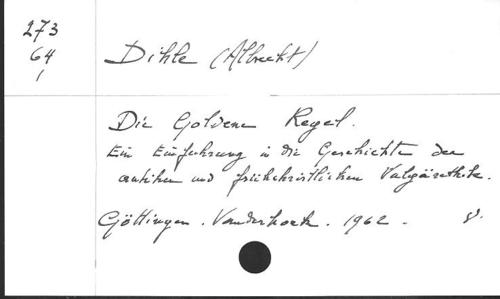 273
64
1
Dihle (Albrecht)
Die Goldene Regel.
Ein Einführung in die Geschichte der
antiken und frühchristlichen Vulgärethik.
Göttingen. Vanderhoek. 1962. 8°.